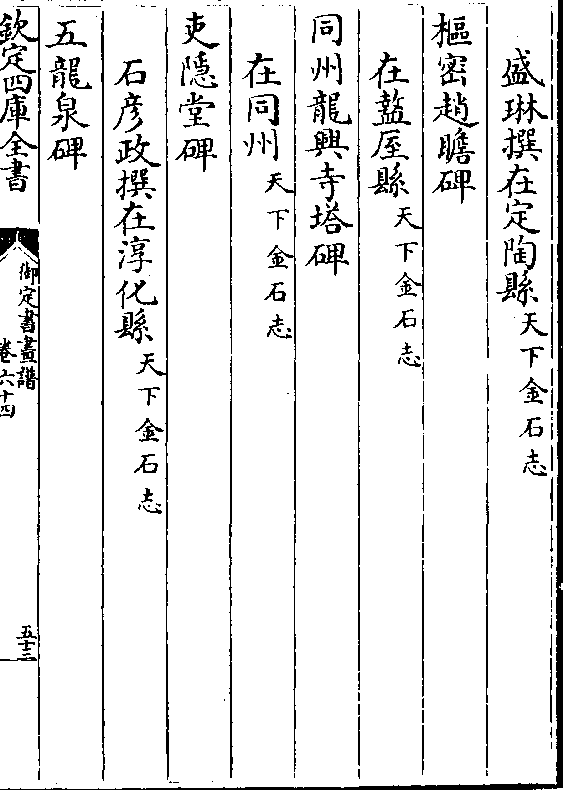 盛琳撰在定陶縣天下金石志
樞密趙瞻碑
在盩厔縣天下金石志
同州龍興寺塔碑
在同州天下金石志
吏隱堂碑
石彦政撰在淳化縣天下金石志
五龍泉碑
欽定四庫全書
御定書畫譜
卷六十四
五十三